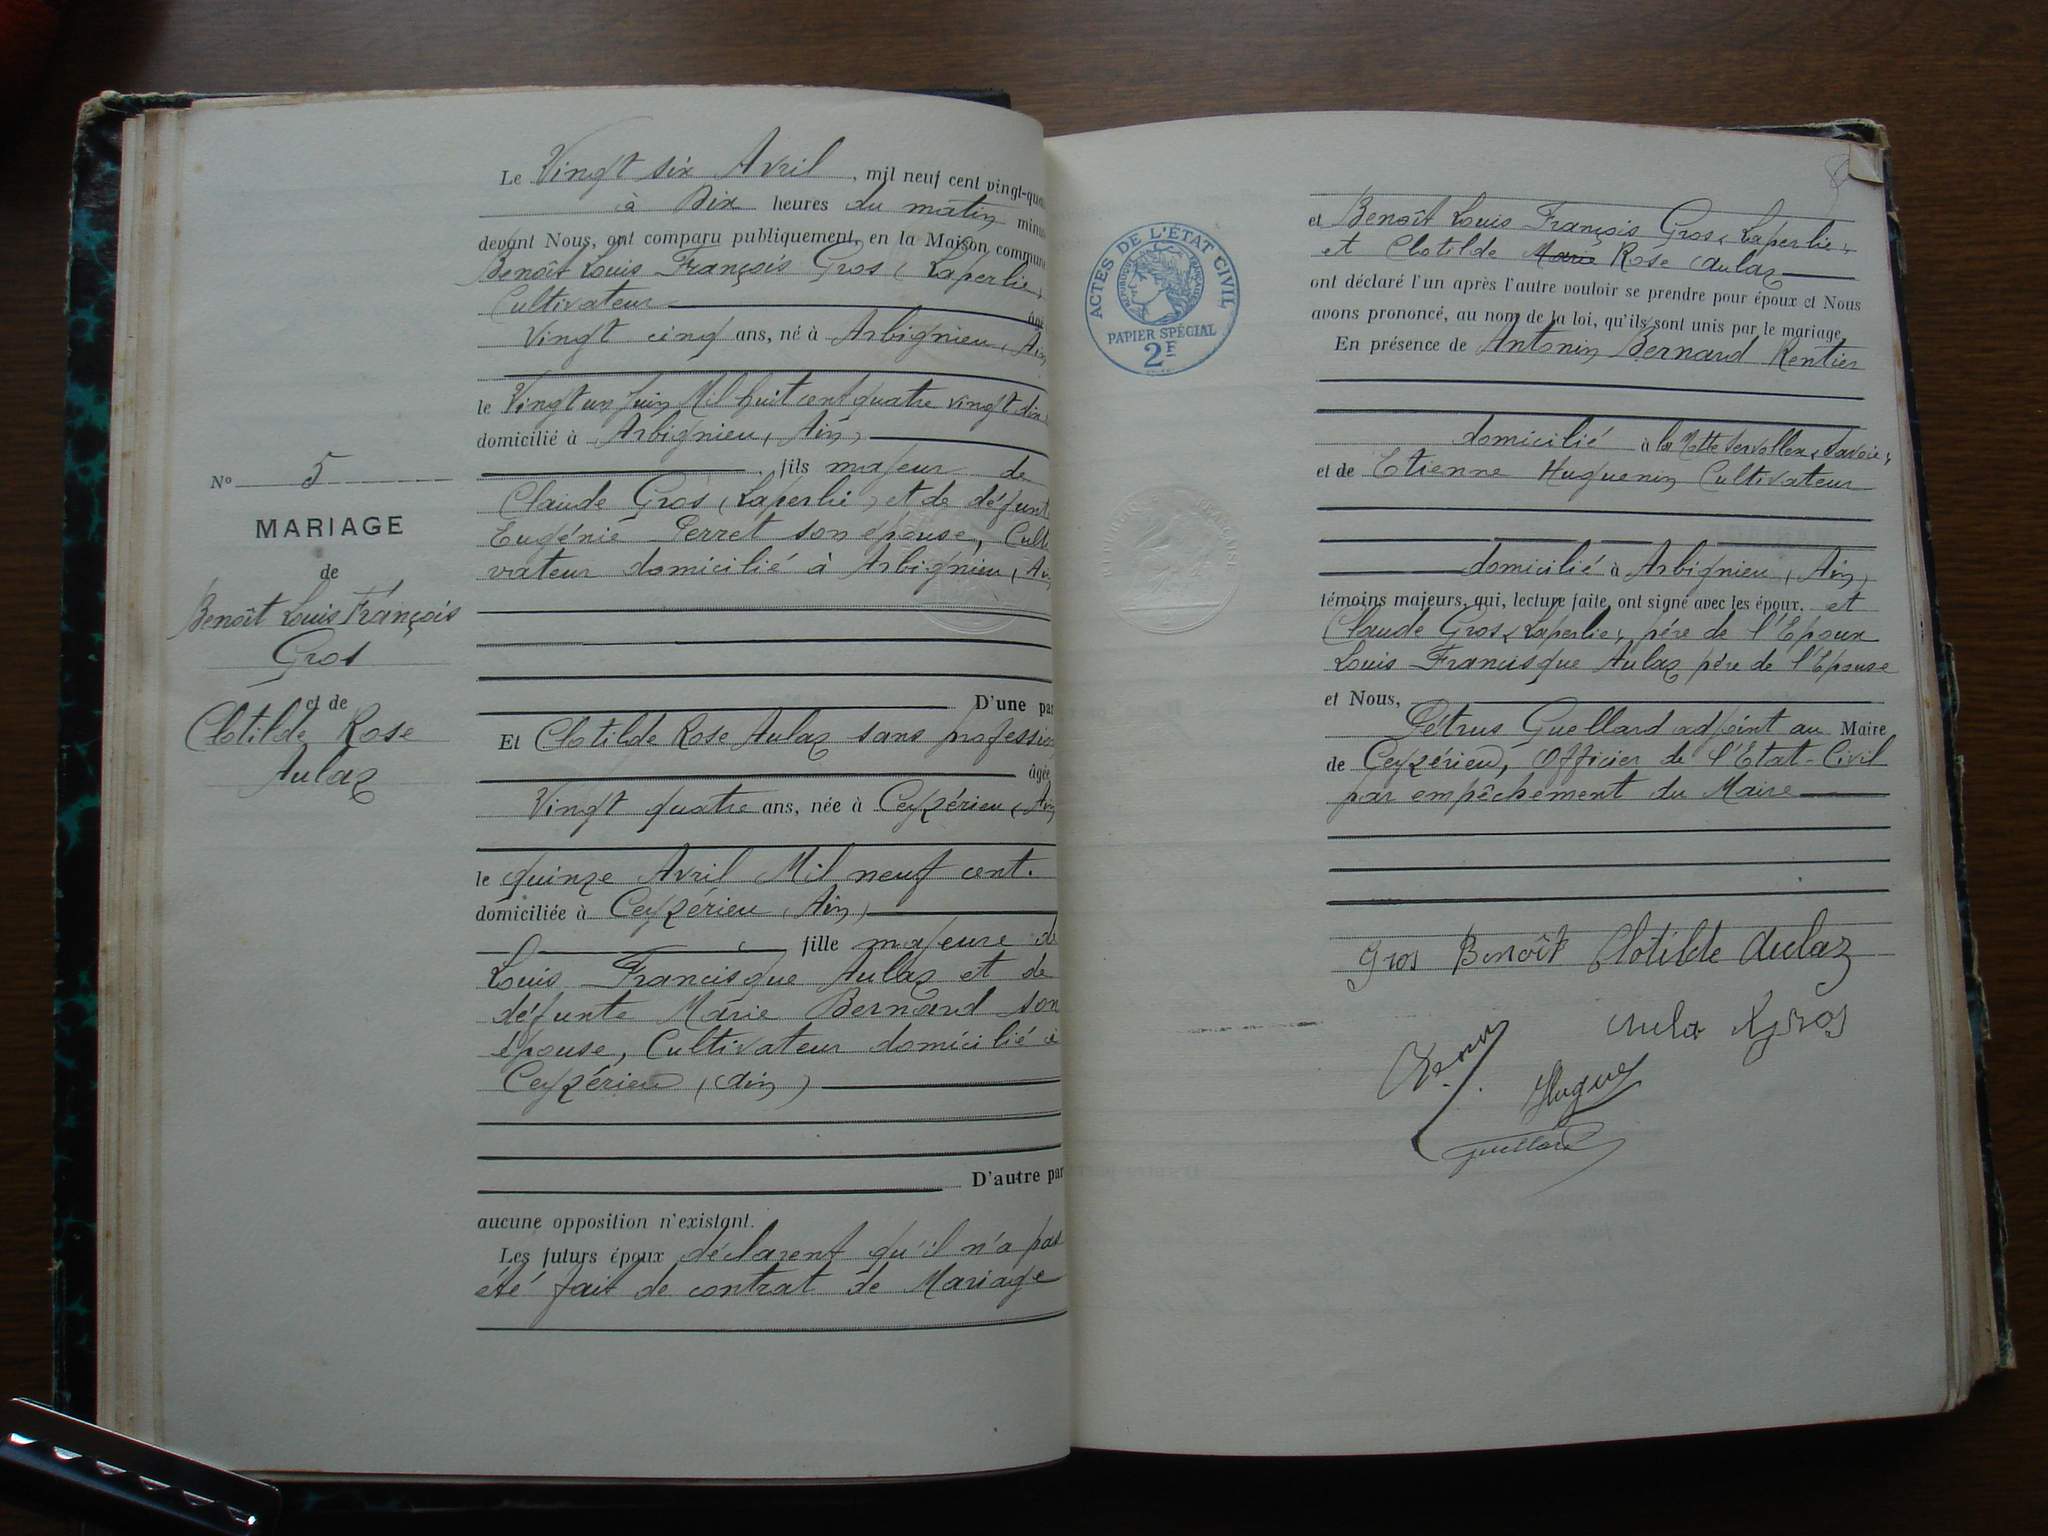 Le Vingt six Avril, mil neuf cent vingt-qua
à Dix heures du matin minu
devant Nous, ont comparu publiquement, en la Maison commune
Benoît Louis François Gros (Laperlie)
Cultivateur âgé
Vingt cinq ans, né à Arbignieu (Ain)
le Vingt un Juin Mil huit cent quatre vingt dix
domicilié à Arbignieu, (Ain)
fils majeur de
Claude Gros (Laperlie) et de défunt
Eugénie Perret son épouse, Culti
vateur domicilié à Arbignieu, (Ain
D'une par
Et Clotilde Rose Aulaz sans profession
âgée
Vingt quatre ans, née à Ceyzérieu (Ain
le quinze Avril Mil neuf cent.
domiciliée à Ceyzérieu (Ain)
fille majeure de
Louis Francisque Aulaz et de
défunte Marie Bernard son
épouse, Cultivateur domicilié à
Ceyzérieu, (Ain)
D'autre par
aucune opposition n'existant.
Les futurs époux déclarent qu'il n'a pas
été fait de contrat de Mariage
No 5
MARIAGE
de
Benoît Louis François
Gros
et de
Clotilde Rose
Aulaz
ACTES DE L'ÉTAT CIVIL
RÉPUBLIQUE FRANÇAISE
PAPIER SPÉCIAL
2F
8
et Benoît Louis François Gros (Laperlie)
et Clotilde Marie Rose Aulaz
ont déclaré l'un après l'autre vouloir se prendre pour époux et Nous
avons prononcé, au nom de la loi, qu'ils sont unis par le mariage
En présence de Antonin Bernard Rentier
domicilié à la Motte Servollex (Savoie)
et de Etienne Huguenin Cultivateur
domicilié à Arbignieu, (Ain)
témoins majeurs, qui, lecture faite, ont signé avec les époux, et
Claude Gros (Laperlie), père de l'Epoux
Louis Francisque Aulaz père de l'Epouse
et Nous,
Pétrus Guellard adjoint au Maire
de Ceyzérieu, Officier de l'Etat-Civil
par empêchement du Maire
Gros Benoît Clotilde Aulaz
Aula Gros
Hugue
Guellard